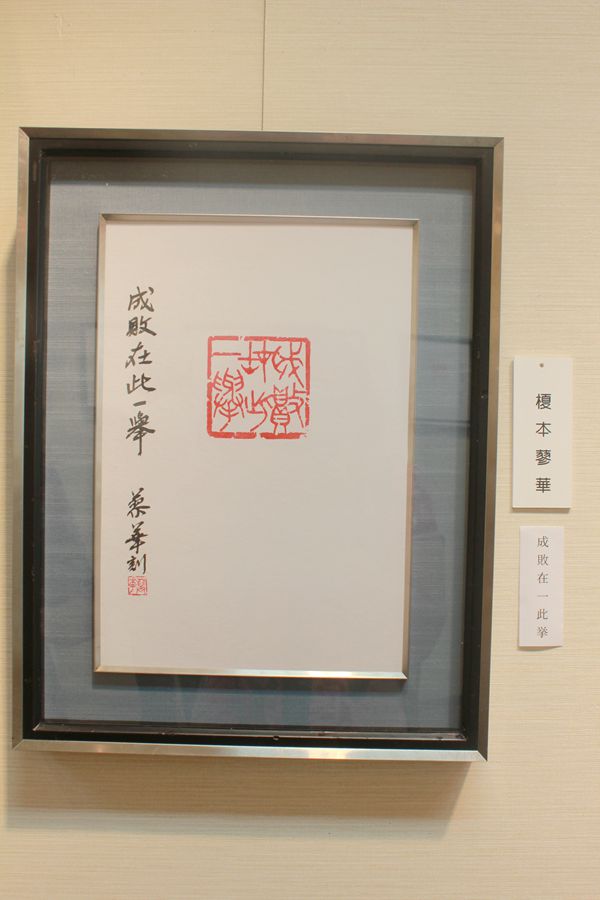 成敗在此一擧
蓼華刻
成敗
在此
一擧
榎本蓼華
成敗在一此挙